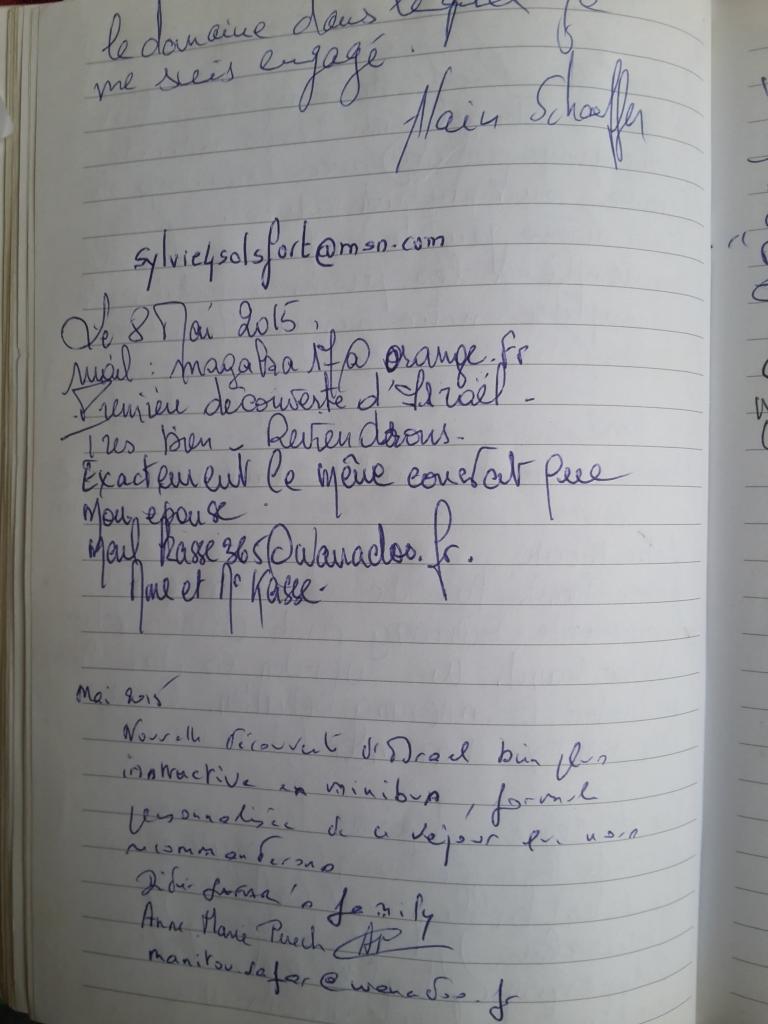 le domaine dans lequel je
me suis engagé.
Alain Schaeffer
sylvie4solsfort@msn.com
Le 8 Mai 2015.
mail : magatra17@orange.fr
Première découverte d'Israël -
Très bien - Reviendrons.
Exactement le même constat que
mon épouse
kasse365@wanadoo.fr.
Mme et Mr Kasse.
Mai 2015
Nouvelle découvert d'Israel bien plus
intéractive en minibus, formule
personnalisée de ce séjour que nous
recommanderons
family
Anne Marie Puech
manitou.safar@wanadoo.fr